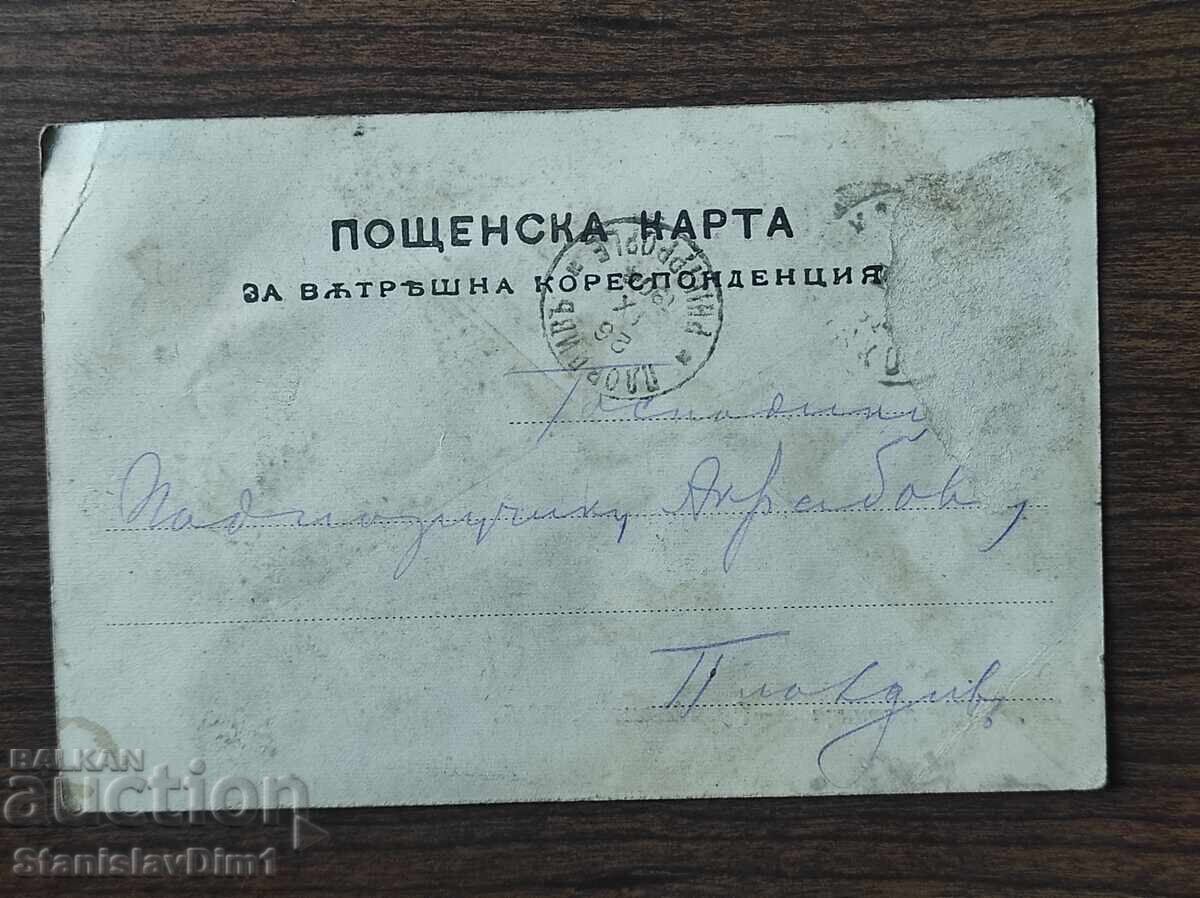 ПОЩЕНСКА КАРТА
ЗА ВѪТРѢШНА КОРЕСПОНДЕНЦИЯ
ПЛОВДИВЪ PHILIPPOPLE
Господину
Подпоручику
Пловдивъ
BALKAN
auction
StanislavDim1